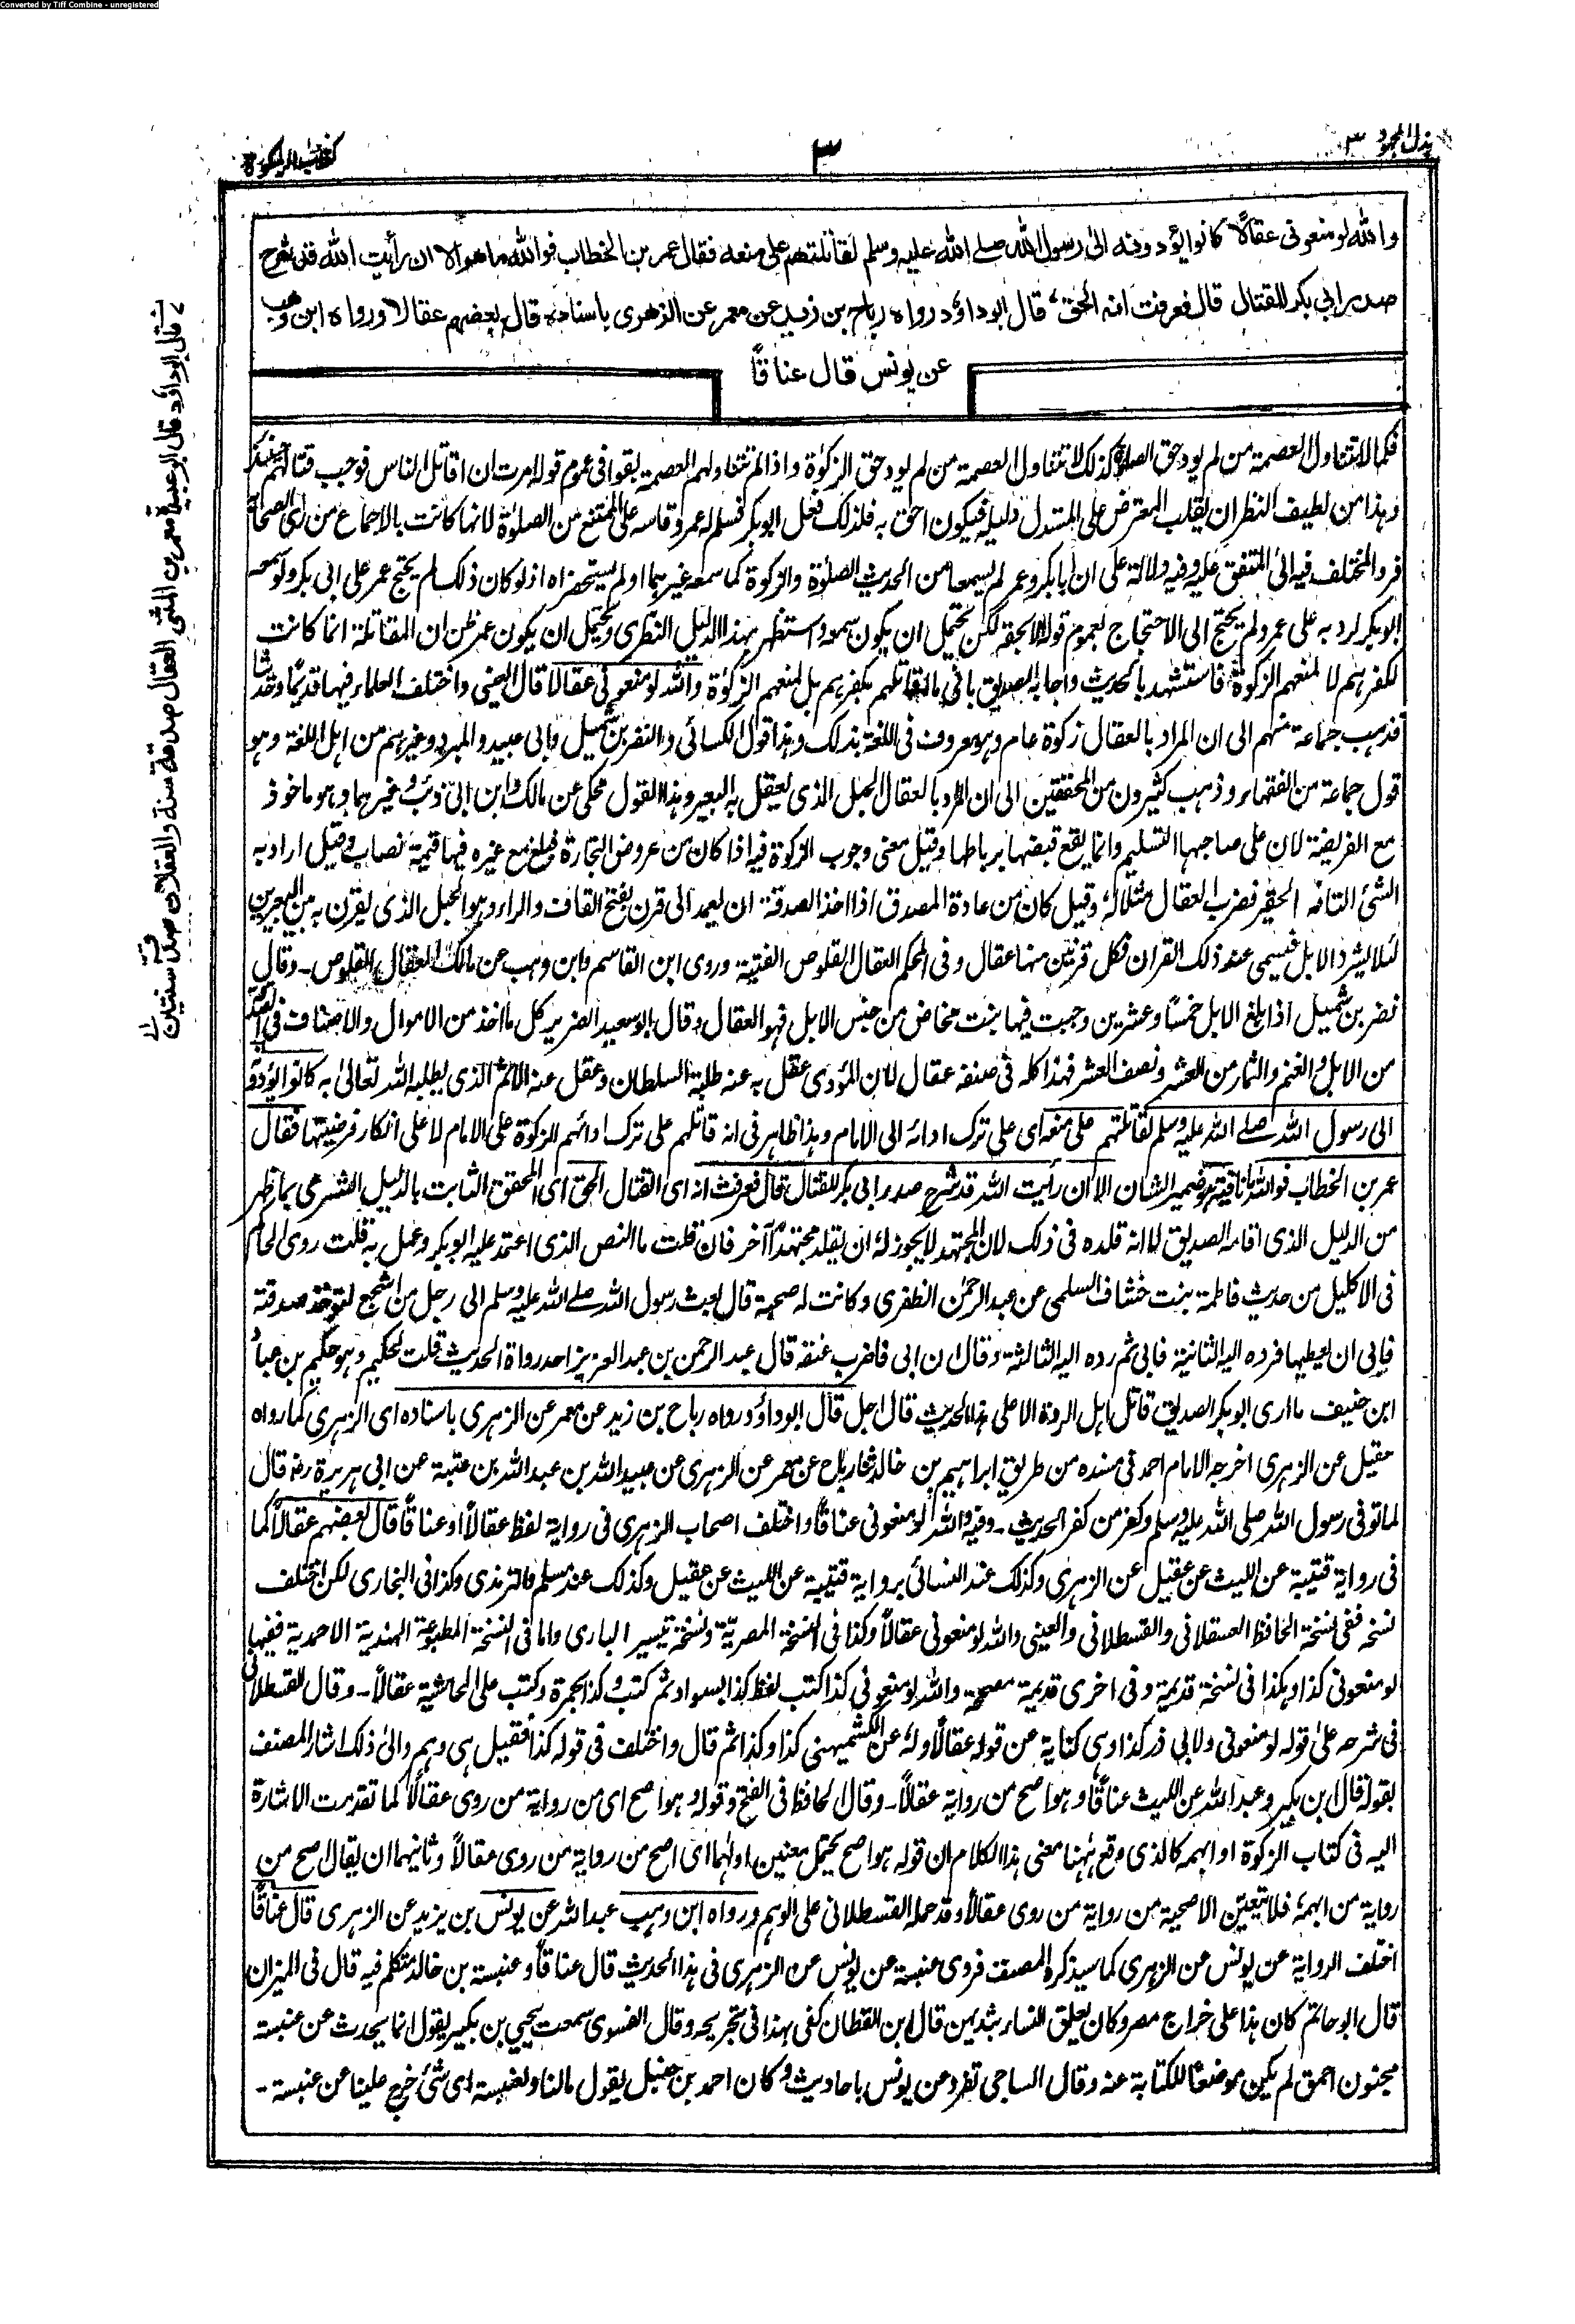 Converted by Tiff Combine - unregistered
بذل المجهود ٣
٣
كتاب الزكوة
والله لو منعونى عقالًا كانوا يؤدونه الى رسول الله صلے الله عليه وسلم لقاتلتهم على منعه فقال عمر بن الخطاب فوالله ما هو الا ان رأيت الله قد شرح
صدر ابي بكر للقتال قال فعرفت انه الحق، قال ابو داؤد رواه رباح بن زيد عن معمر عن الزهرى باسناده قال بعضهم عقالا ورواه ابن وهب
عن يونس قال عناقًا
فكما لا تتناول العصمة من لم يود حق الصلوة كذلك لا تتناول العصمة من لم يود حق الزكوة واذا لم تتناولهم العصمة بقوا فى عموم قوله امرت ان اقاتل الناس فوجب قتالهم حينئذ
وهذا من لطيف النظر ان يقلب المعترض على المستدل دليله فيكون احق به فلذلك فعل ابو بكر فسلم له عمر وقاسه على الممتنع من الصلوة لانها كانت بالاجماع من راى الصحابة
فرد المختلف فيه الى المتفق عليه وفيه دلالة على ان ابا بكر وعمر لم يسمعا من الحديث الصلوة والزكوة كما سمعه غيرهما او لم يستحضراه اذ لو كان ذلك لم يحتج عمر على ابى بكر ولو سمعه
ابو بكر لرد به على عمر ولم يحتج الى الاحتجاج بعموم قوله الا بحقه لكن يحتمل ان يكون سمعه واستظهر بهذا الدليل النظرى ويحتمل ان يكون عمر ظن ان المقاتلة انما كانت
لكفرهم لا لمنعهم الزكوة فاستشهد بالحديث واجابه الصديق بانى ما اقاتلهم بكفرهم بل لمنعهم الزكوة والله لو منعونى عقالا قال العينى واختلف العلماء فيها قديمًا وحديثًا
فذهب جماعة منهم الى ان المراد بالعقال زكوة عام وهو معروف فى اللغة بذلك وهذا قول الكسائى والنضر بن شميل وابى عبيد والمبرد وغيرهم من اهل اللغة وهو
قول جماعة من الفقهاء وذهب كثيرون من المحققين الى ان المراد بالعقال الحبل الذى يعقل به البعير وهذا القول محكى عن مالك وابن ابى ذئب وغيرهما وهو ماخوذ
مع الفريضة لان على صاحبها التسليم وانما يقع قبضها برباطها وقيل معنى وجوب الزكوة فيه اذا كان من عروض التجارة فبلغ مع غيره فيها قيمة نصاب وقيل اراد به
الشئ التافه الحقير فضرب العقال مثلا له، وقيل كان من عادة المصدق اذا اخذ الصدقة ان يعمد الى قرن بفتح القاف والراء وهو الحبل الذى يقرن به بين البعيرين
لئلا يشرد الابل فيسمى عند ذلك القران فكل قرنين منها عقال وفى المحكم العقال القلوص الفتية وروى ابن القاسم وابن وهب عن مالك العقال القلوص - وقال
نضر بن شميل اذا بلغ الابل خمسًا وعشرين وجبت فيها بنت مخاض من جنس الابل فهو العقال وقال ابو سعيد الضرير كل ما اخذ من الاموال والاصناف فى الصدقة
من الابل والغنم والثمار من العشر ونصف العشر فهذا كله فى صنفه عقال لان المؤدى عقل به عنه طلبة السلطان وعقل عنه الاثم الذى يطلبه الله تعالى به كانوا يؤدونه
الى رسول الله صلے الله عليه وسلم لقاتلتهم على منعه اى على ترك ادائه الى الامام وهذا ظاهر فى انه قاتلهم على ترك ادائهم الزكوة على الامام لا على انكار فرضيتها فقال
عمر بن الخطاب فوالله ما نافية هو ضمير الشان الا ان رأيت الله قد شرح صدر ابى بكر للقتال قال فعرفت انه اى القتال الحق اى المحقق الثابت بالدليل الشرعى بما ظهر
من الدليل الذى اقامه الصديق لا انه قلده فى ذلك لان المجتهد لا يجوز له ان يقلد مجتهدًا آخر فان قلت ما النص الذى اعتمد عليه ابو بكر وعمل به قلت روى الحاكم
فى الاكليل من حديث فاطمة بنت خشاف السلمى عن عبد الرحمن الظفرى وكانت له صحبة قال بعث رسول الله صلے الله عليه وسلم الى رجل من اشجع لتؤخذ صدقته
فابى ان يعطيها فرده اليه الثانية فابى ثم رده اليه الثالثة وقال ان ابى فاضرب عنقه قال عبد الرحمن بن عبد العزيز احد رواة الحديث قلت لحكيم وهو حكيم بن عباد
ابن حنيف ما ارى ابو بكر الصديق قاتل اهل الردة الا على هذا الحديث قال اجل قال ابو داؤد ورواه رباح بن زيد عن معمر عن الزهرى باسناده اى الزهرى كما رواه
عقيل عن الزهرى اخرجه الامام احمد فى مسنده من طريق ابراهيم بن خالد ثنا رباح عن معمر عن الزهرى عن عبيد الله بن عبد الله بن عتبة عن ابى هريرة رضـ قال
لما توفى رسول الله صلى الله عليه وسلم وكفر من كفر الحديث - وفيه والله لو منعونى عناقًا واختلف اصحاب الزهرى فى رواية لفظ عقالًا او عناقًا قال بعضهم عقالًا كما
فى رواية قتيبة عن الليث عن عقيل عن الزهرى وكذلك عند النسائى برواية قتيبة عن الليث عن عقيل وكذلك عند مسلم والترمذى وكذا فى البخارى لكن اختلف
نسخه ففى نسخة الحافظ العسقلانى والقسطلانى والعينى والله لو منعونى عقالًا وكذا فى النسخة المصرية ونسخة تيسير البارى واما فى النسخة المطبوعة الهندية الاحمدية ففيها
لو منعونى كذا وهكذا فى نسخة قديمة وفى اخرى قديمة مصححة والله لو منعونى كذا كتب لفظ كذا بسواد ثم كتب وكذا بحمرة وكتب على الحاشية عقالًا - وقال القسطلانى
فى شرحه على قوله لو منعونى ولابى ذر كذا وهى كناية عن قوله عقالًا وله عن الكشميهنى كذا وكذا ثم قال واختلف فى قوله كذا فقيل هى وهم والى ذلك اشار المصنف
بقوله قال ابن بكير وعبد الله عن الليث عناقًا وهو اصح من رواية عقالًا - وقال الحافظ فى الفتح وقوله وهو اصح اى من رواية من روى عقالًا كما تقدمت الاشارة
اليه فى كتاب الزكوة او ابهمه كالذى وقع ههنا معنى هذا الكلام ان قوله هو اصح يحتمل معنيين اولهما اى اصح من رواية من روى عقالًا وثانيهما ان يقال اصح من
رواية من ابهمه فلا تتعين الاصحية من رواية من روى عقالًا وقد حمله القسطلانى على الوهم ورواه ابن وهب عبد الله عن يونس بن يزيد عن الزهرى قال عناقًا
اختلف الرواية عن يونس عن الزهرى كما سيذكره المصنف فروى عنبسة عن يونس عن الزهرى فى هذا الحديث قال عناقًا وعنبسة بن خالد متكلم فيه قال فى الميزان
قال ابو حاتم كان هذا على خراج مصر وكان يعلق النساء بثديهن قال ابن القطان كفى بهذا فى تجريحه وقال الفسوى سمعت يحيى بن بكير يقول انما يحدث عن عنبسة
مجنون احمق لم يكن موضعًا للكتابة عنه وقال الساجى تفرد عن يونس باحاديث وكان احمد بن حنبل يقول مالنا ولعنبسة اى شئ خرج علينا عن عنبسة -
قال ابو داؤد قال ابو عبيدة معمر بن المثنى العقال صدقة سنة والعقالان صدقة سنتين